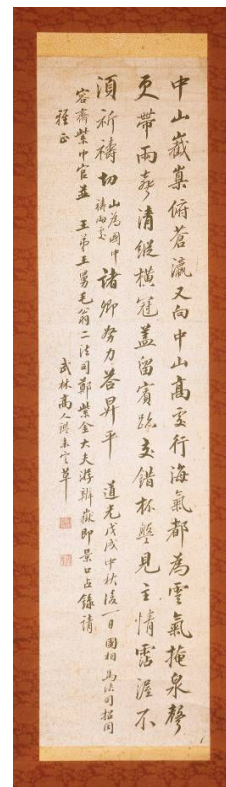 中山巀嶪俯蒼瀛又向中山高處行海氣都為雲氣掩泉聲
更帶雨聲清縱橫冠蓋留賓跡交錯杯盤見主情霑渥不
須祈禱切山為國中禱雨處諸卿努力答昇平 道光戊戌中秋後一日國相 馬法司招同
容齋紫巾官並 王弟王舅毛翁二法司鄭紫金大夫游辨嶽即景口占錄請
雅正
武林高人鑑未定草